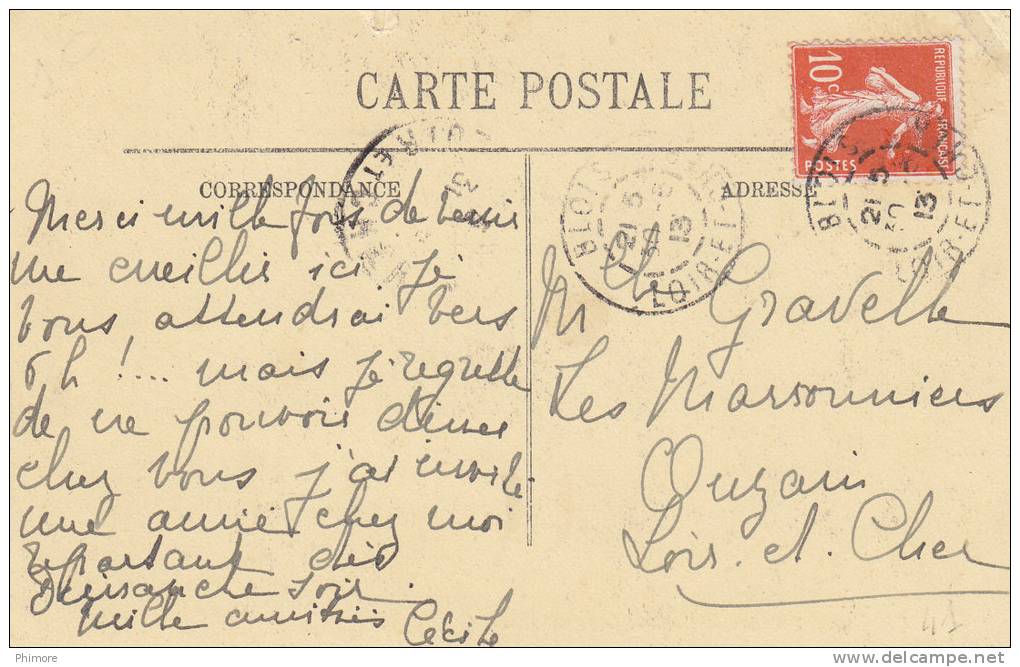 CARTE POSTALE
CORRESPONDANCE
ADRESSE
REPUBLIQUE FRANÇAISE
10c
POSTES
BLOIS
21 5
13
LOIR-ET-
BLOIS
21 5
13
LOIR-ET-
Merci mille fois de venir
me cueillir ici je
vous attendrai vers
6 h !.... mais je regrette
de ne pouvoir dîner
chez vous j'ai invité
une amie chez moi
repartant dès
Dimanche soir.
mille amitiés Cécile
Mr Ch Gravelle
Les Marronniers
Onzain
Loir et Cher
Phimore
www.delcampe.net